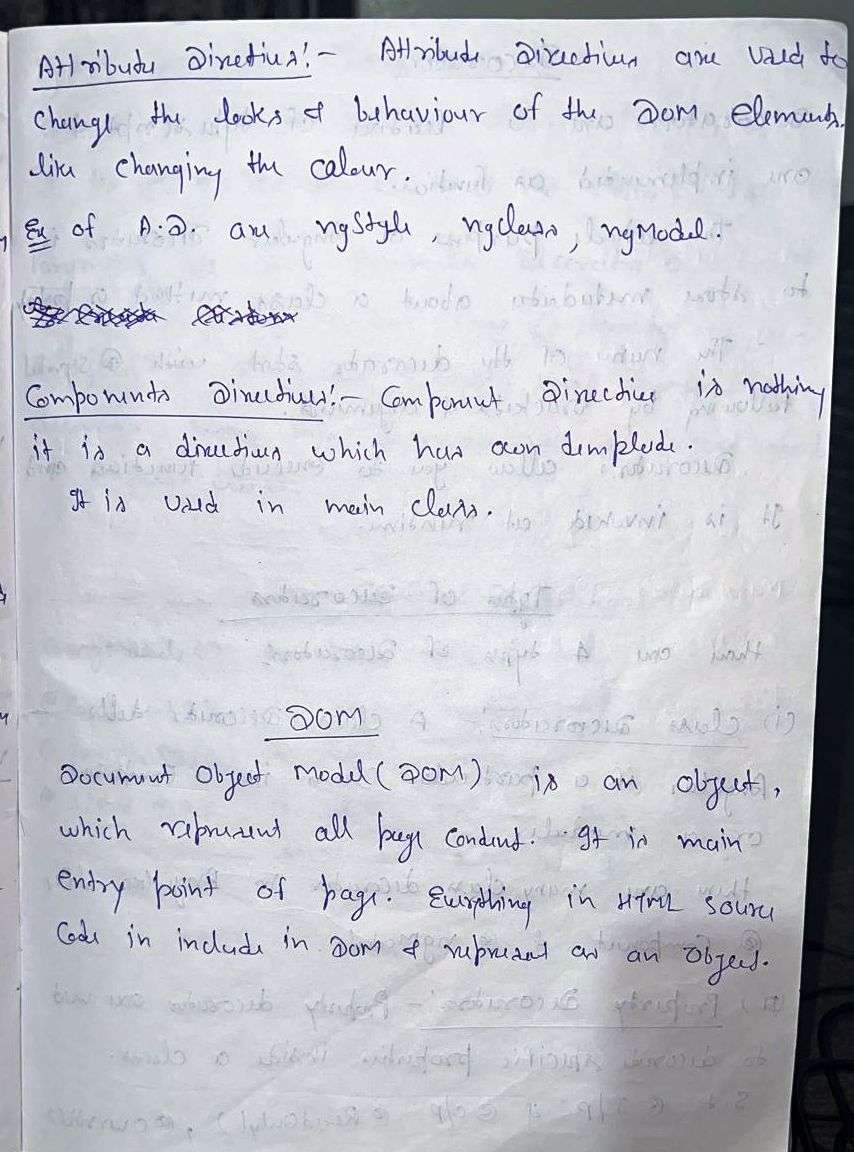 Attribute Directives:- Attribute Directives are used to
change the looks & behaviour of the DOM elements.
like changing the colour.
Ex of A.D. are ngStyle, ngclass, ngModel.
Components Directives:- Component Directive is nothing
it is a directives which has own template.
It is used in main class.
DOM
Document Object Model (DOM) is an object,
which represent all page content. It is main
entry point of page. Everything in HTML source
Code in include in DOM & represent as an object.